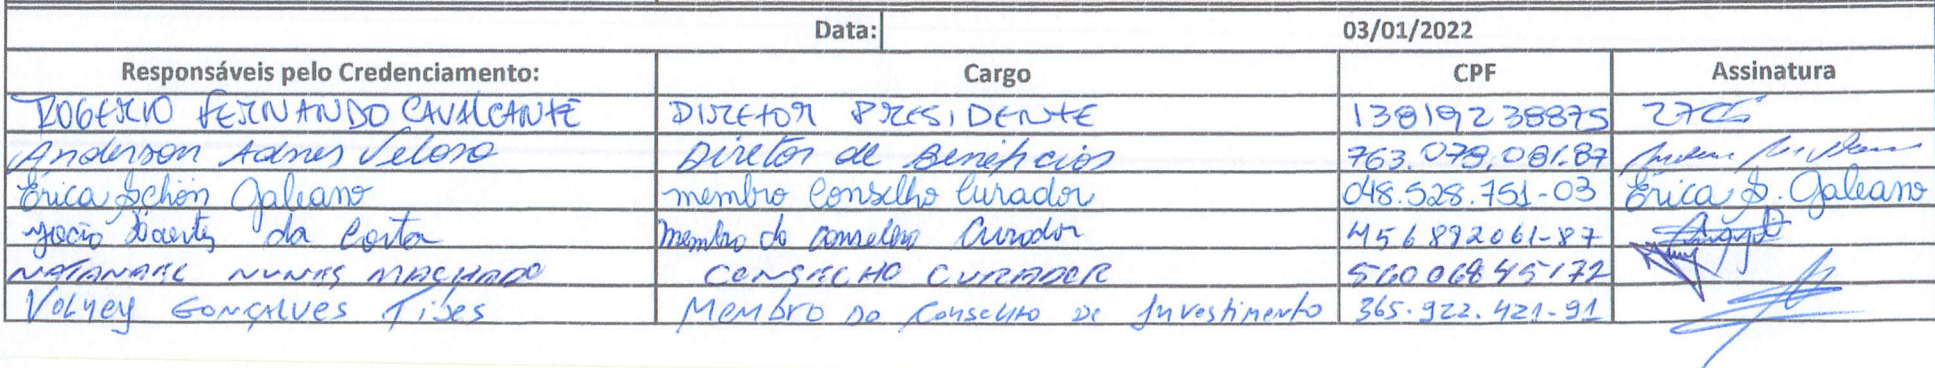 Data: 03/01/2022
Responsáveis pelo Credenciamento: Cargo CPF Assinatura
ROGERIO FERNANDO CAVALCANTE DIRETOR PRESIDENTE 13819238875
Anderson Adnes Veloso Diretor de Benefícios 763.079.081.87
Érica Schön Galeano membro Conselho Curador 048.528.751-03 Érica S. Galeano
João da Costa Membro do conselho Curador 456892061-87
NATANAEL NUNES MACHADO CONSELHO CURADOR 56006845172
Volney Gonçalves Tibes Membro do Conselho de Investimento 365.922.421-91